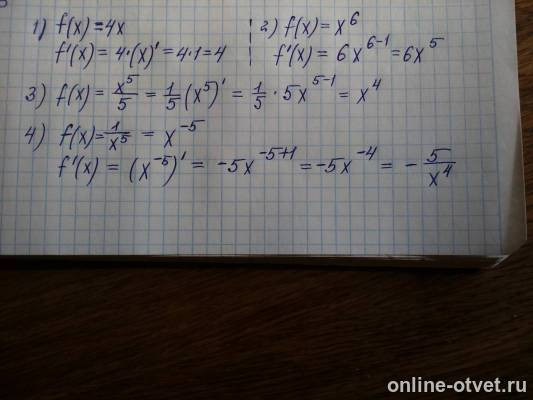 1) f(x) = 4x
f'(x) = 4·(x)' = 4·1 = 4
2) f(x) = x^6
f'(x) = 6x^{6-1} = 6x^5
3) f(x) = x^5/5 = 1/5 (x^5)' = 1/5 · 5x^{5-1} = x^4
4) f(x) = 1/x^5 = x^{-5}
f'(x) = (x^{-5})' = -5x^{-5+1} = -5x^{-4} = - 5/x^4
online-otvet.ru